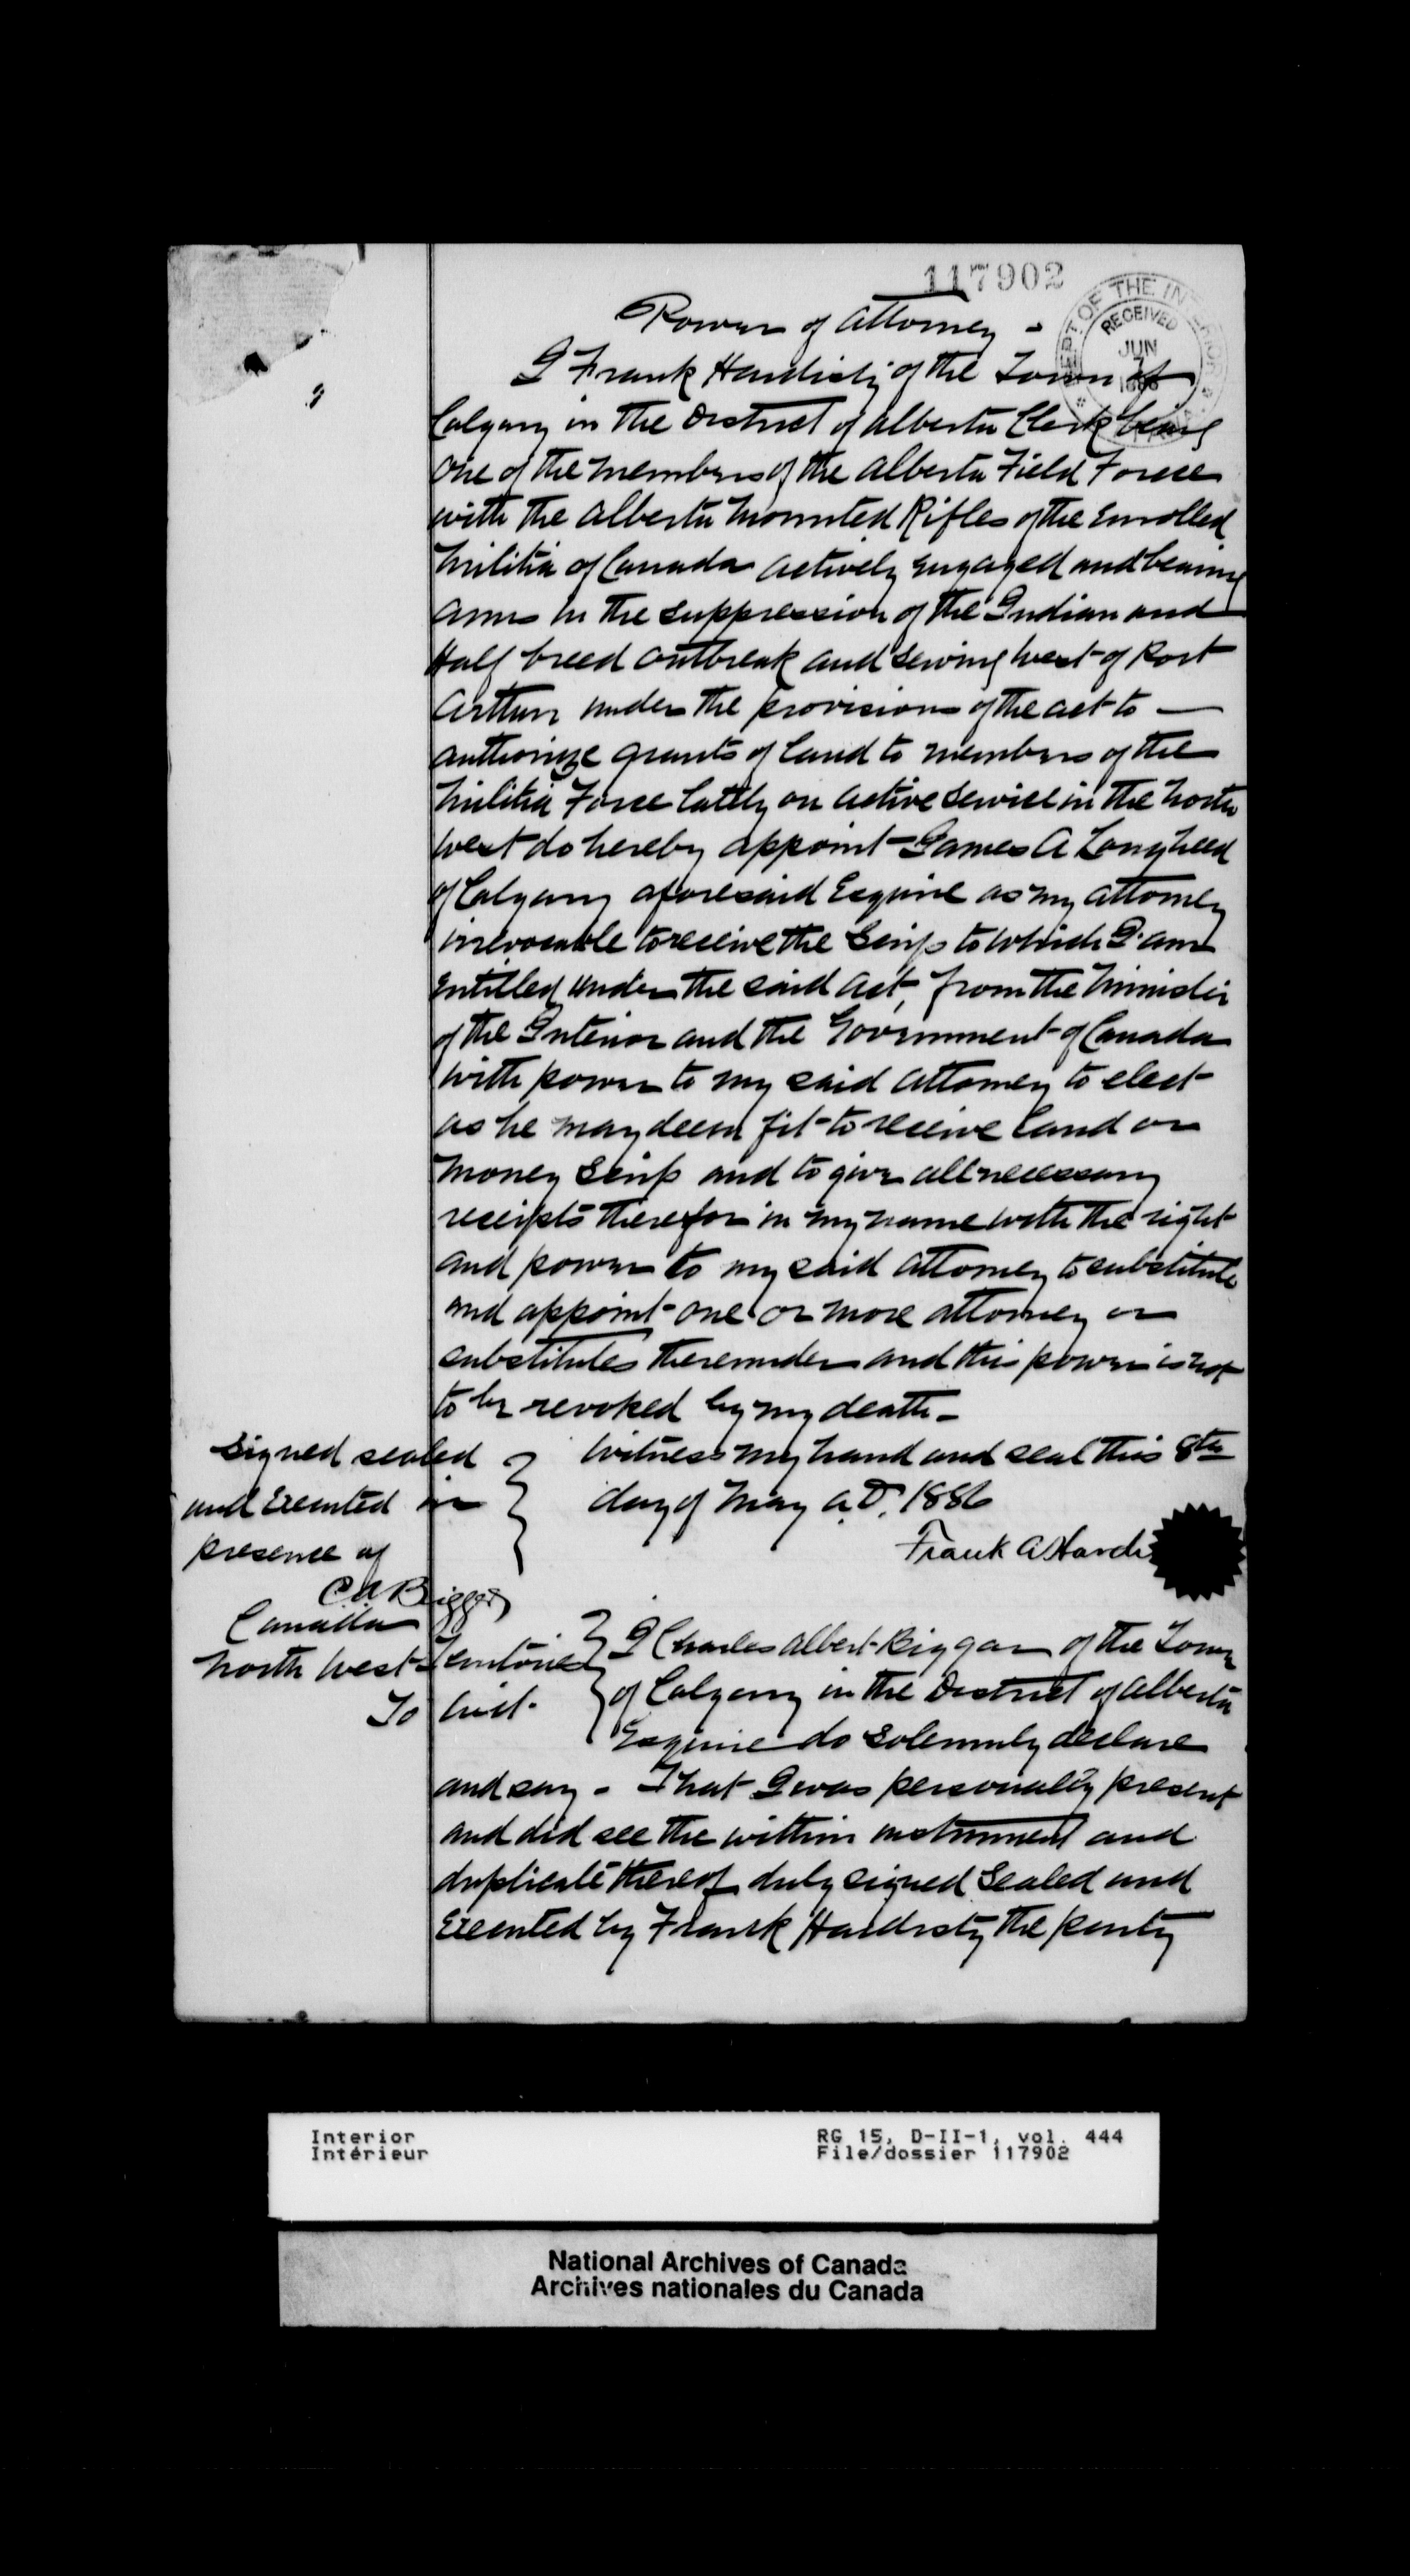 117902
DEPT OF THE INTERIOR
RECEIVED
JUN
7
1886
Power of Attorney -
I Frank Hardisty of the Town of
Calgary in the District of Alberta Clerk being
one of the members of the Alberta Field Force
with the Alberta Mounted Rifles of the Enrolled
Militia of Canada actively engaged and bearing
arms in the suppression of the Indian and
Half breed outbreak and serving west of Port
Arthur under the provisions of the act to —
authorize grants of land to members of the
Militia Force lately on active service in the North
West do hereby appoint James A Lougheed
of Calgary aforesaid Esquire as my attorney
irrevocable to receive the Scrip to which I am
entitled under the said act, from the Minister
of the Interior and the Government of Canada
with power to my said attorney to elect
as he may deem fit to receive land or
money Scrip and to give all necessary
receipts therefor in my name with the right
and power to my said attorney to substitute
and appoint one or more attorney or
substitutes thereunder and this power is not
to be revoked by my death -
Signed sealed
and Executed in
presence of
C A Biggar
Witness my hand and seal this 8th
day of May A.D. 1886
Frank A Hardi
Canada
North West Territories
To Wit.
I Charles Albert Biggar of the Town
of Calgary in the District of Alberta
Esquire do solemnly declare
and say - That I was personally present
and did see the within instrument and
duplicate thereof duly signed Sealed and
Executed by Frank Hardisty the party
Interior
Intérieur
RG 15, D-II-1, vol. 444
File/dossier 117902
National Archives of Canada
Archives nationales du Canada